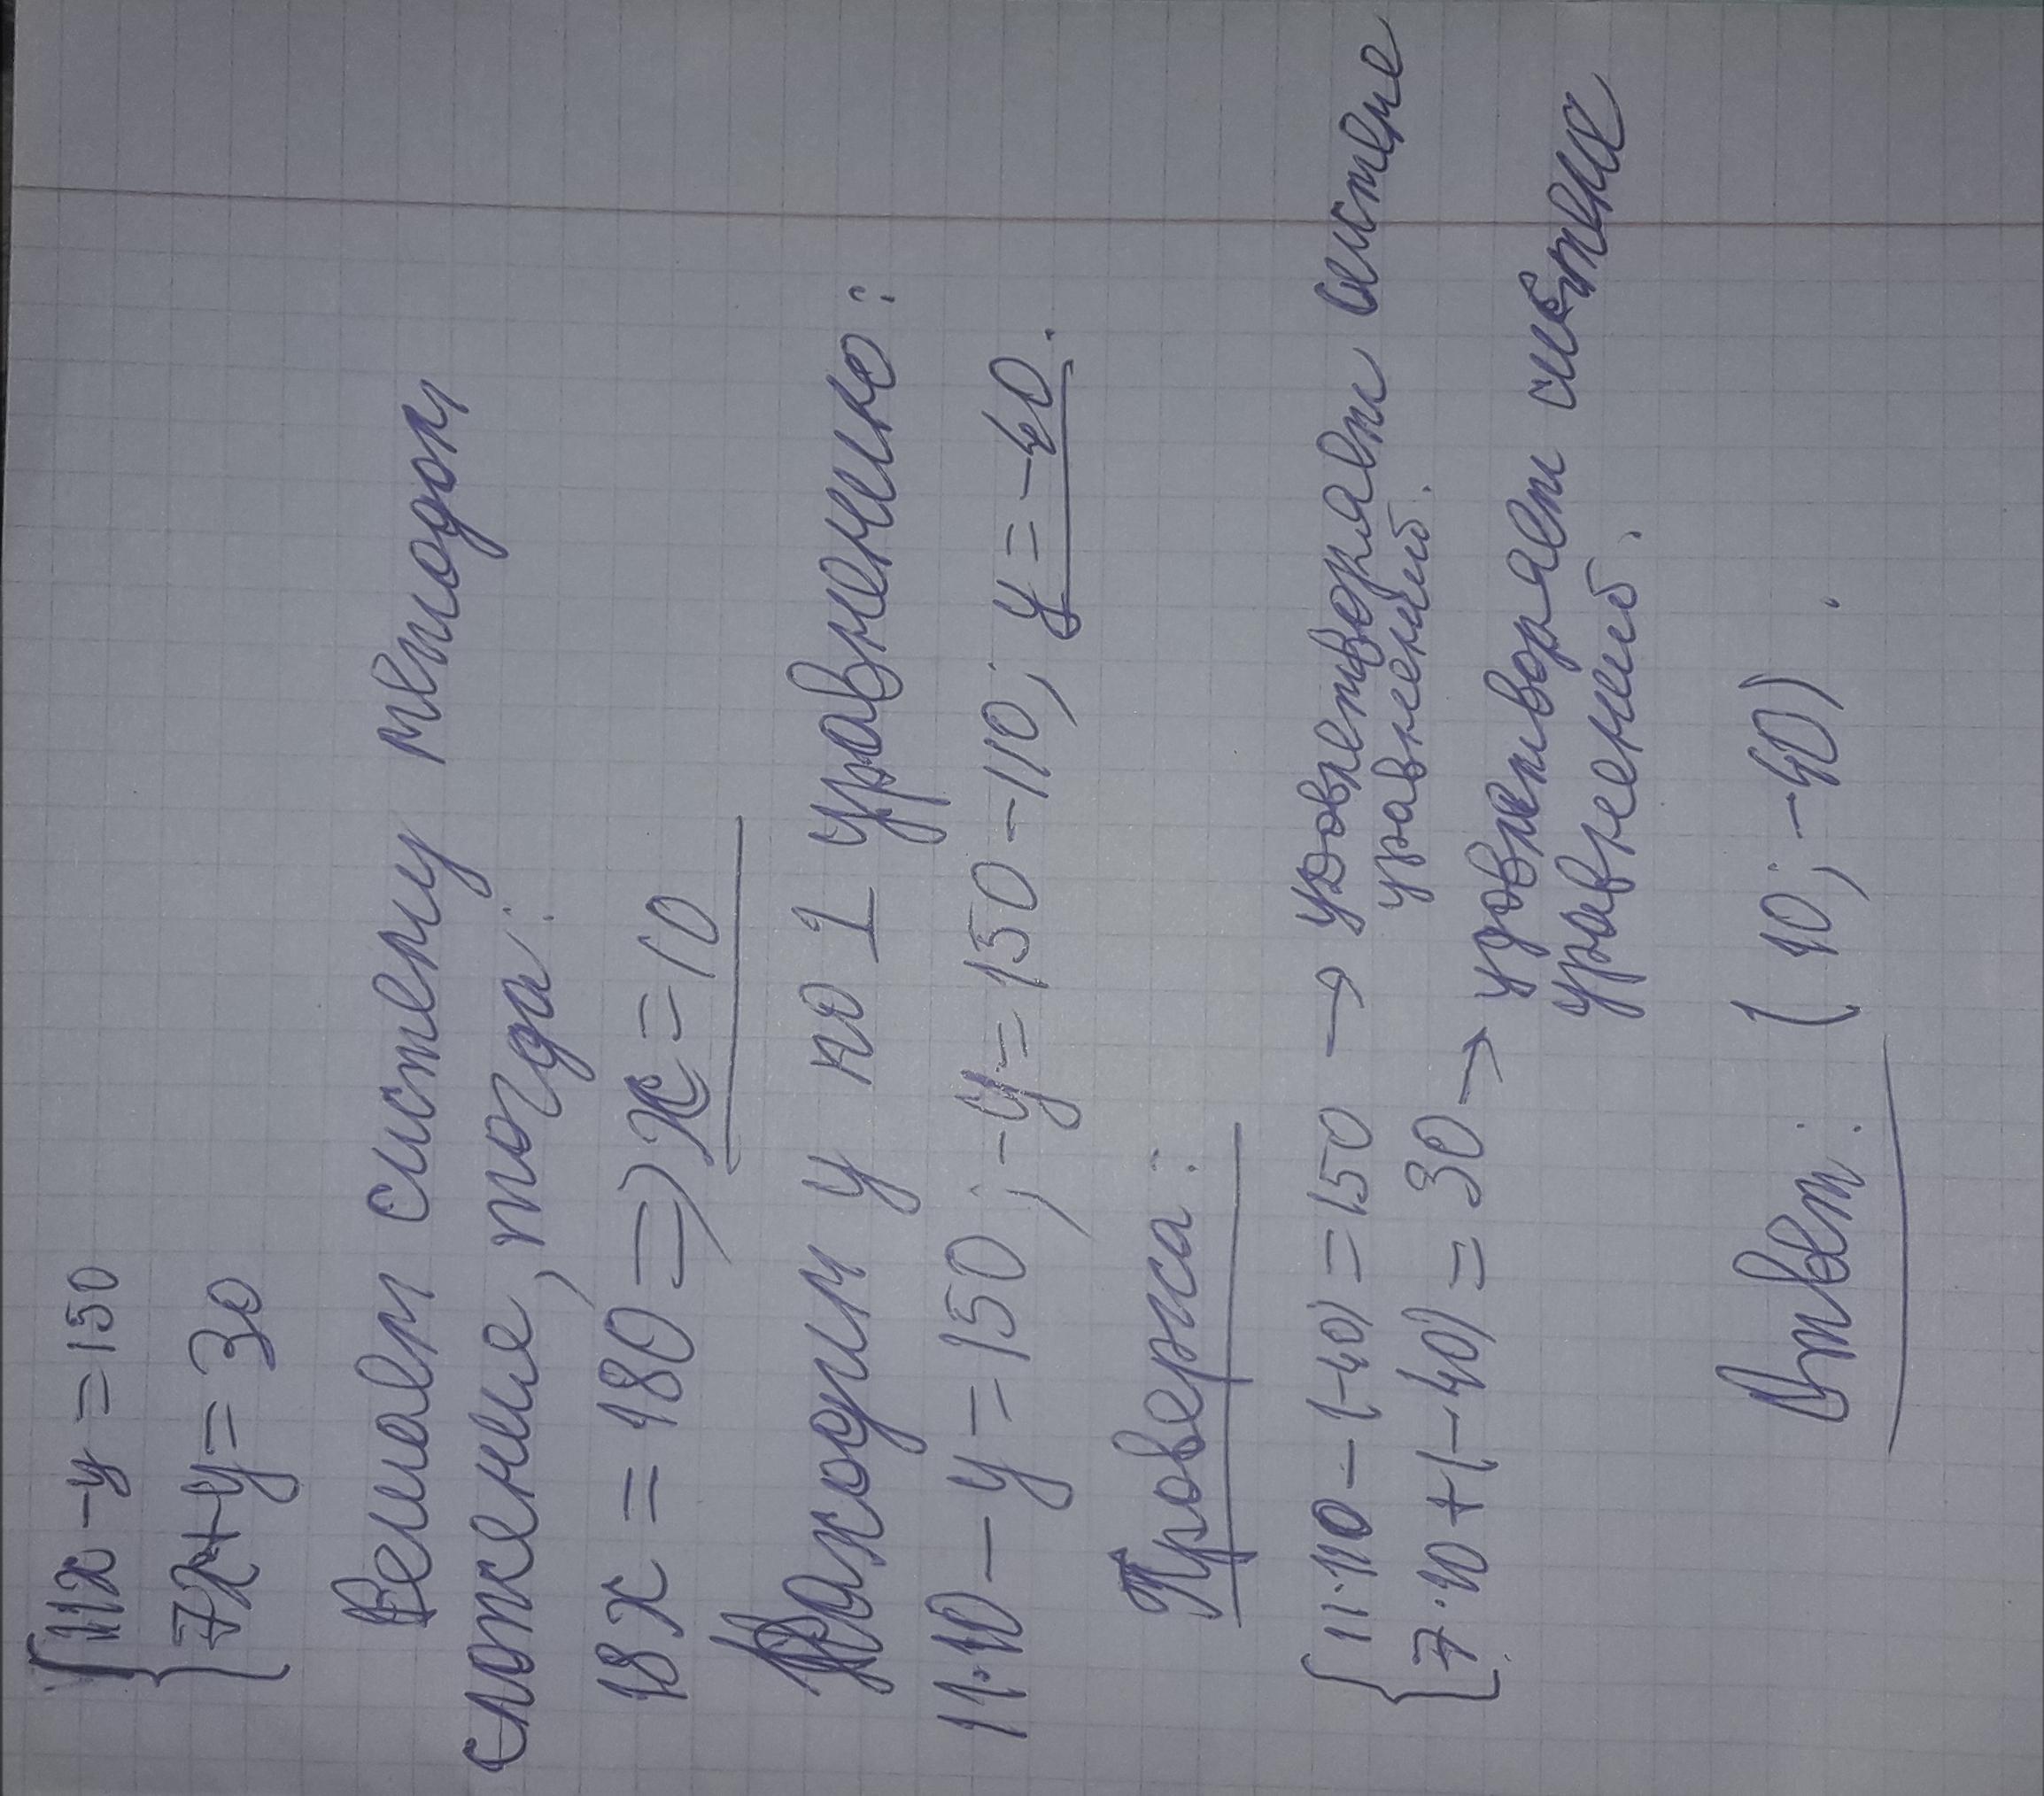 {11x - y = 150
{7x + y = 30
Решаем систему методом
сложение, тогда:
18x = 180 => x = 10
Находим y по 1 уравнению:
11·10 - y = 150; -y = 150 - 110; y = -40.
Проверка:
{11·10 - (-40) = 150 → удовлетворяет системе
уравнений.
{7·10 + (-40) = 30 → удовлетворяет системе
уравнений.
Ответ: (10; -40).